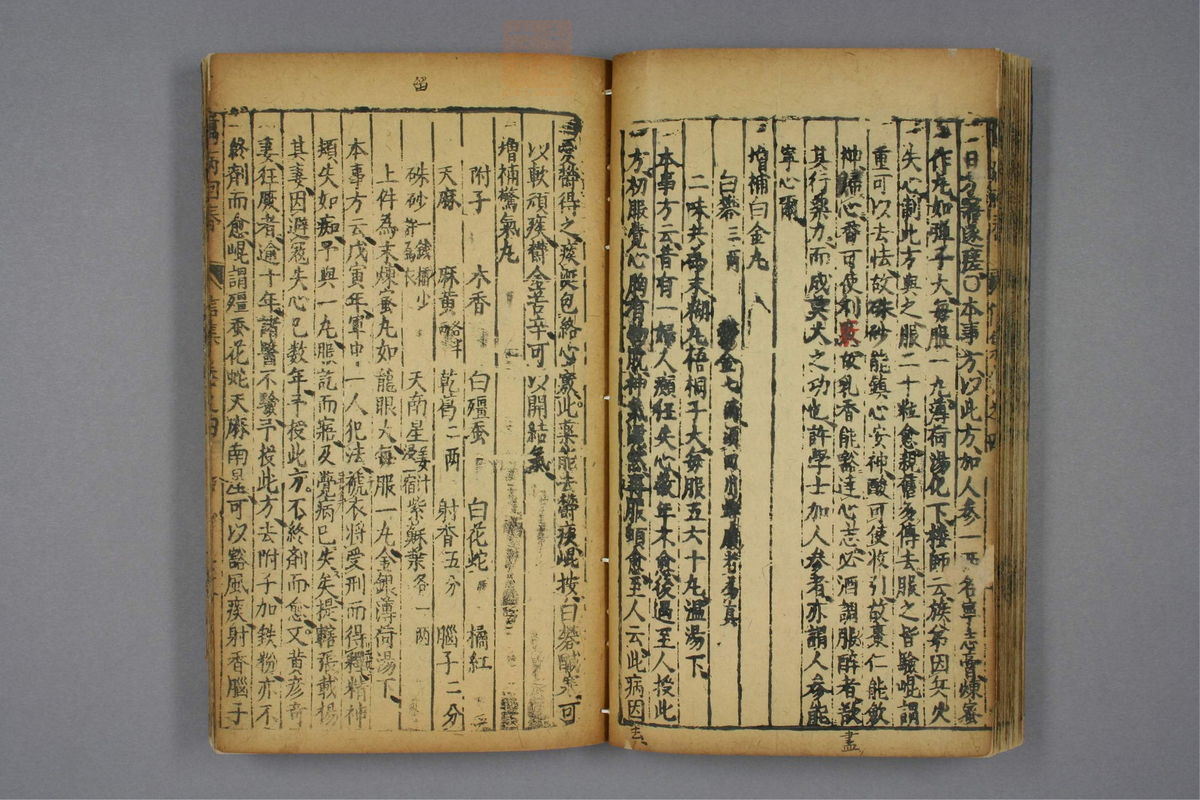 一日方寤遂瘥〇本事方以此方加人參一兩名寧志膏煉蜜
作丸如彈子大每服一丸薄荷湯化下樓師云族弟因兵火
失心制此方與之服二十粒愈親舊多得去服之皆驗崐謂
重可以去怯故硃砂能鎮心安神酸可使收引故棗仁能斂
神歸心香可使利竅故乳香能豁達心志必酒調服醉者散
其行藥力而成莫大之功也許學士加人參者亦謂人參能
寧心爾
增補白金丸
白礬三兩 鬱金七兩須四川蟬腹者為真
二味共為末糊丸梧桐子大每服五六十丸溫湯下
本事方云昔有一婦人癲狂失心數年不愈後遇至人授此
方初服覺心胸有物脫神氣灑然再服頓愈至人云此病因
憂鬱得之痰涎包絡心竅此藥能去鬱痰崐按白礬鹹寒可
以軟頑痰鬱金苦辛可以開結氣
增補驚氣丸
附子 木香 白殭蚕 白花蛇 橘紅
天麻 麻黃 乾葛二兩 射香五分 腦子二分
硃砂一錢 天南星薑汁浸一宿 紫蘇葉各一兩
上件為末煉蜜丸如龍眼大每服一丸金銀薄荷湯下
本事方云戊寅年軍中一人犯法褫衣將受刑而得釋精神
頓失如痴予與一丸服訖而寐及覺病已失矣提轄張載揚
其妻因避寇失心已數年予授此方不終劑而愈又黃彥奇
妻狂厥者逾十年諸醫不驗予授此方去附子加鉄粉亦不
終劑而愈崐謂殭蚕花蛇天麻南星可以豁風痰射香腦子
去
盡